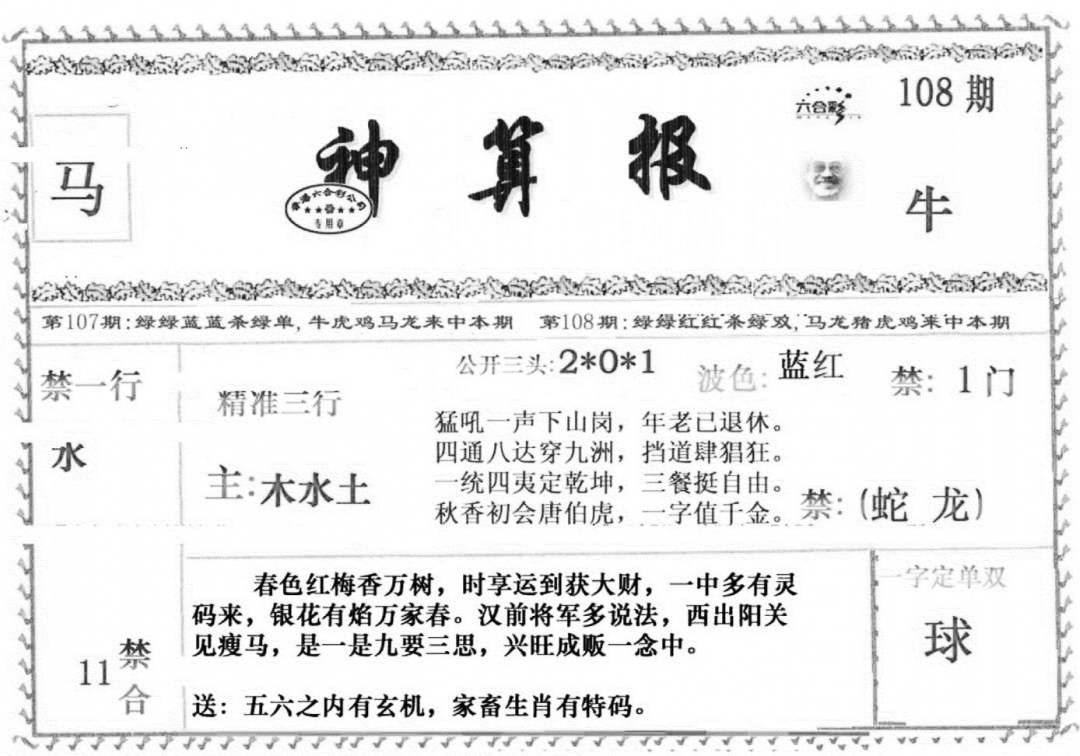 108期
六合彩
神算报
马
香港六合彩公司
专用章
牛
第107期:绿绿蓝蓝杀绿单,牛虎鸡马龙来中本期 第108期:绿绿红红杀绿双,马龙猪虎鸡来中本期
禁一行
水
精准三行
主:木水土
公开三头:2*0*1
波色:蓝红
禁:1门
猛吼一声下山岗，年老已退休。
四通八达穿九洲，挡道肆猖狂。
一统四夷定乾坤，三餐挺自由。
秋香初会唐伯虎，一字值千金。
禁:(蛇 龙)
11禁合
春色红梅香万树，时享运到获大财，一中多有灵
码来，银花有焰万家春。汉前将军多说法，西出阳关
见瘦马，是一是九要三思，兴旺成贩一念中。
送：五六之内有玄机，家畜生肖有特码。
一字定单双
球